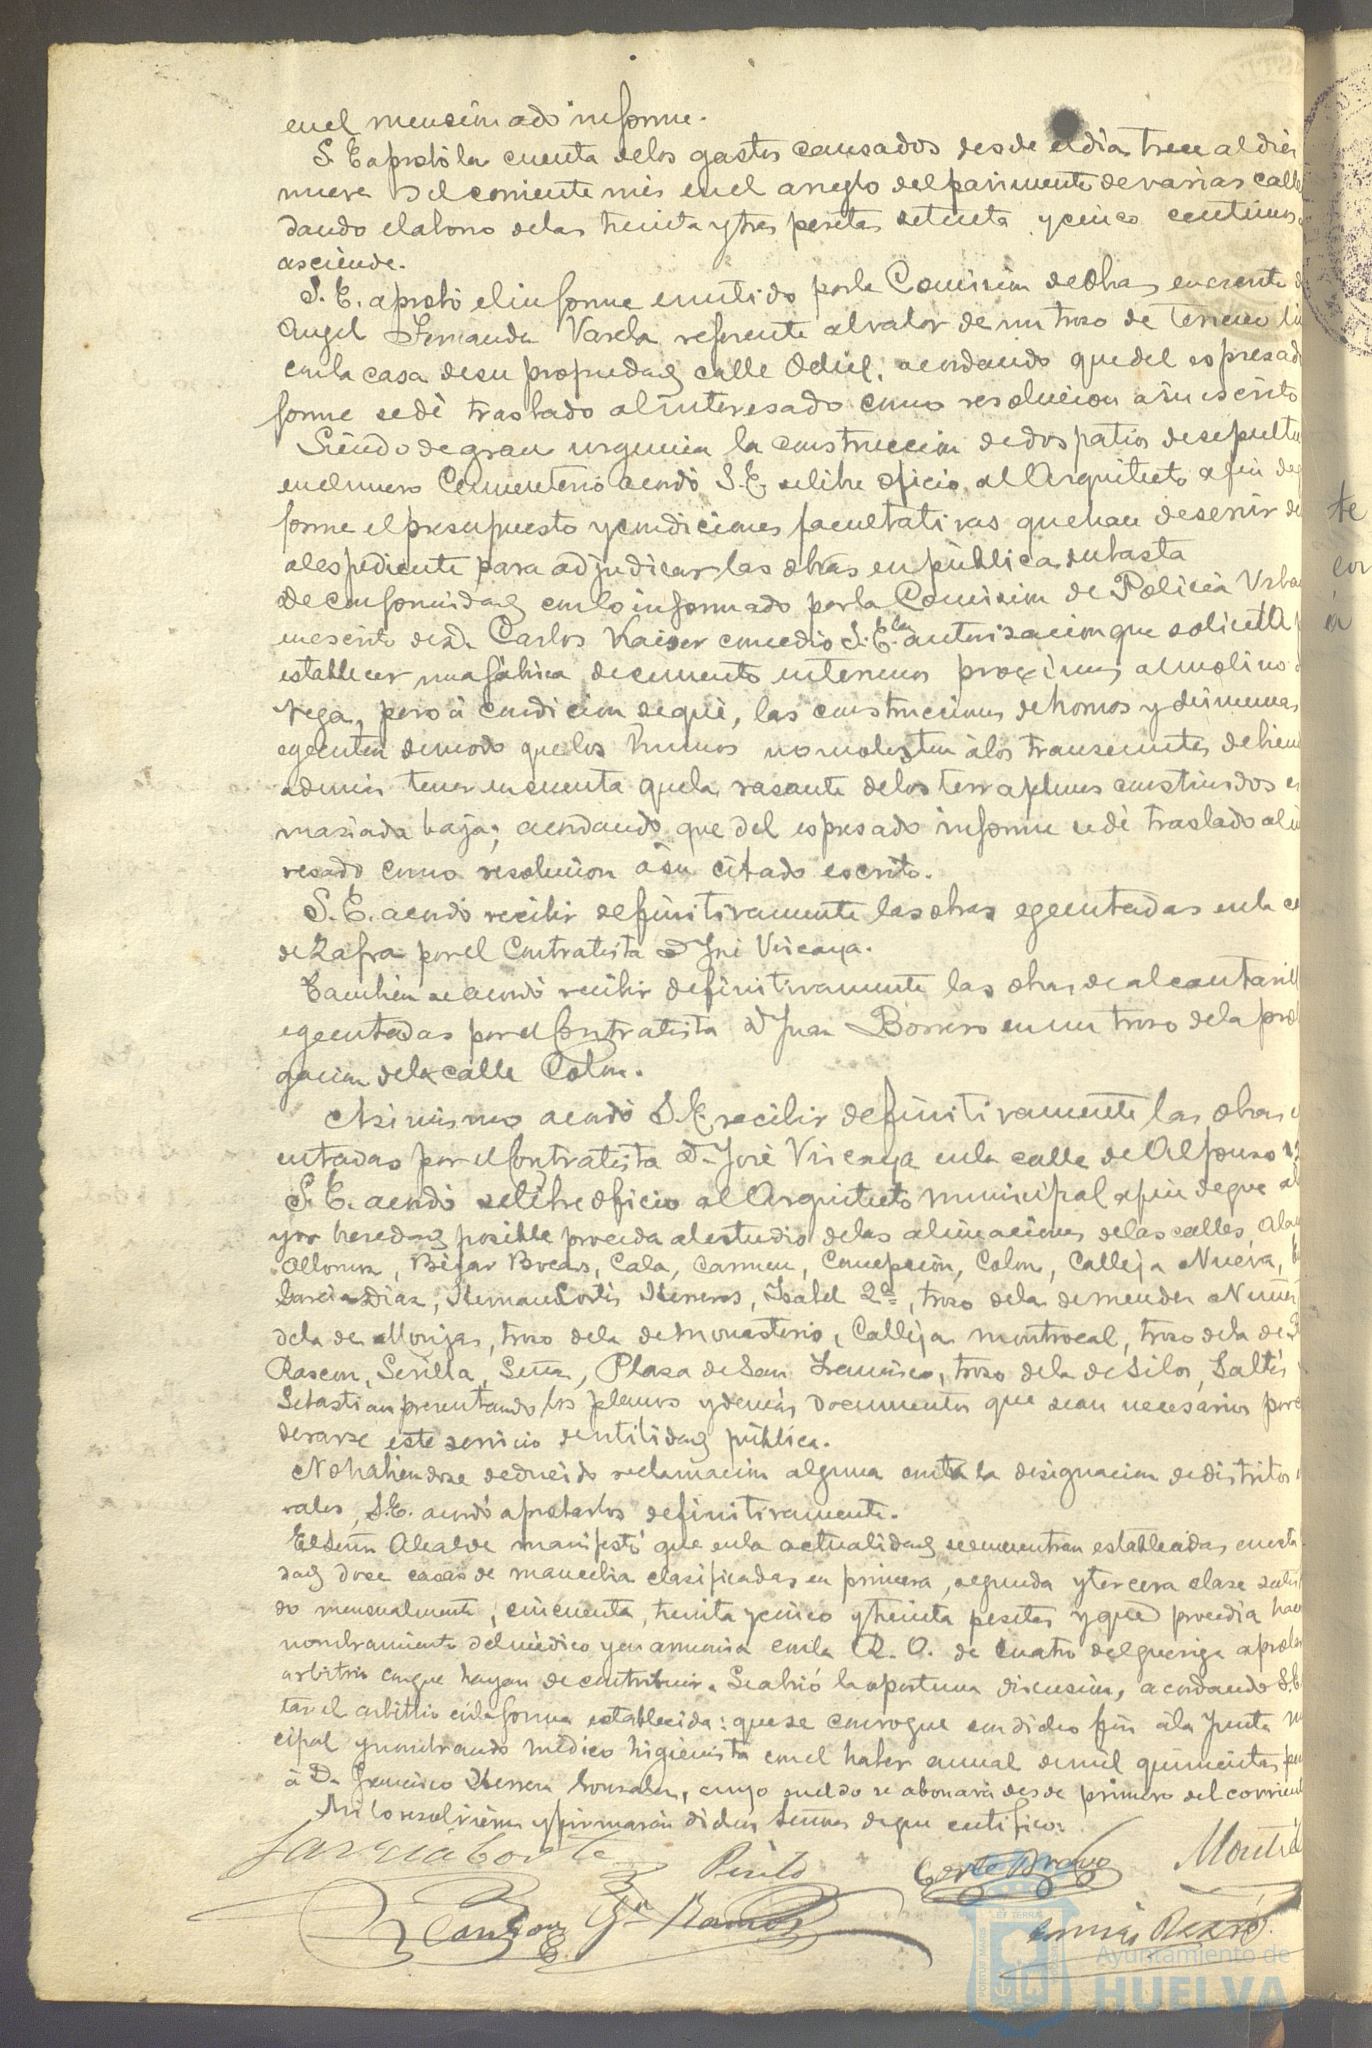 en el mencionado informe.
S. E aprobó la cuenta de los gastos causados desde el dia trece al diez
nueve del corriente mes en el arreglo del pavimento de varias calle
dando el abono de las treinta y tres pesetas setenta y cinco centimos
asciende.
S. E. aprobó el informe emitido por la Comision de Obras en escrito d
Angel Fernandez Varela referente al valor de un trozo de terreno
en la casa de su propiedad calle Odiel, acordando que del espresad
forme se dé traslado al interesado como resolucion a su escrito
Siendo de gran urgencia la construccion de dos patios de sepultu
en el nuevo Cementerio acordó S. E. se libre oficio al Arquitecto a fin de
forme el presupuesto y condiciones facultativas que han de servir de
al espediente para adjudicar las obras en pública subasta
De conformidad con lo informado por la Comision de Policia Urba
en escrito de D. Carlos Kaiser concedio S. E. la autorizacion que solicita
establecer una fábrica de cemento en terrenos proximos al molino
Vega, pero á condicion de que, las construcciones de hornos y chimeneas
egecuten de modo que los humos no molesten á los transeuntes debien
ademas tener en cuenta que la rasante de los terraplenes construidos e
masiada baja; acordando que del espresado informe se dé traslado al in
resado como resolucion á su citado escrito.
S. E. acordó recibir definitivamente las obras egecutadas en la ca
de Zafra por el Contratista D José Viscaya.
Tambien se acordó recibir definitivamente las obras de alcantarill
egecutadas por el Contratista D Juan Borrero en un trozo de la prol
gacion de la calle Colon.
Asi mismo acordó S. E. recibir definitivamente las obras e
cutadas por el Contratista D. José Viscaya en la calle de Alfonso 12
S. E. acordó se libre oficio al Arquitecto municipal a fin de que a
yor brevedad posible proceda al estudio de las alineaciones de las calles,
Alonso, Béjar Bocas, Cala, Carmen, Concepcion, Colon, Calleja Nueva,
Garcia Diaz, Hernan Cortés Herreros, Isabel 2ª, trozo de la de Mendez Nuñez
de la de Monjas, trozo de la de Monasterio, Calleja Montrocal, trozo de la de
Rascon, Sevilla, Señas, Plaza de San Francisco, trozo de la de Silos, Saltés
Sebastian presentando los planos y demás documentos que sean necesarios
derarse este servicio de utilidad pública.
No habiendose deducido reclamacion alguna contra la designacion de distritos
rales, S. E. acordó aprobarlos definitivamente.
El Señor Alcalde manifestó que en la actualidad se encuentran establecidas en esta
dad doce casas de mancebia clasificadas en primera, segunda y tercera clase
do mensualmente, cincuenta, treinta y cinco y treinta pesetas y que procedia hace
nombramiento del médico y en armonia con la R. O. de cuatro del que rige aprobar
arbitrio con que hayan de contribuir. Se abrió la oportuna discusion, acordando S. E
tar el arbitrio en la forma establecida: que se convoque con dicho fin á la Junta m
cipal y nombrando médico higienista con el haber anual de mil quinientas pe
á D. Francisco Herrera Gonzalez, cuyo sueldo se abonará desde primero del corrient
Asi lo resolvieron y firmarán dichos Señores de que certifico:
Garcia Corte Pinto Corto Bravo
Ramos
Ayuntamiento de
HUELVA